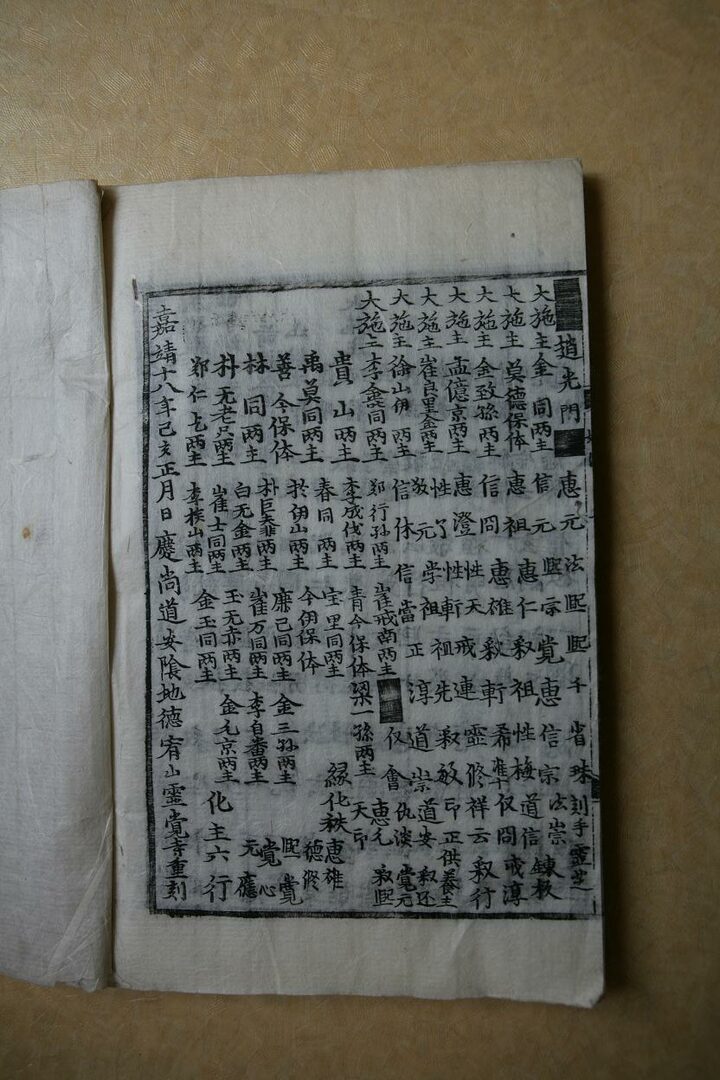 趙先門 惠元 法熙 熙千 省珠 刻手 靈芝
大施主金 同兩主 信元 熙宗 覺惠 信宗 法崇 鍊板
大施主 莫德保体 惠祖 惠仁 㕘祖 性梅 道信 戒淳
大施主 金致孫兩主 信冏 惠雄 㕘軒 希 仅冏 㕘行
大施主 孟億京兩主 惠澄 性天 戒連 靈修 祥云
大施主 崔良里金兩主 性了 性軒 祖先 㕘敏 印正 供養主
大施主 徐山伊兩主 敬元 学祖 淳 道崇 道安 㕘还
大施主 李 同兩主 信休 信當 正 仅會 仇淡 覺元
鄭行孫兩主 崔戒南兩主 惠允 㕘熙
貴 山兩主 李成伐兩主 青今保体 梁一孫兩主 天印
禹莫同兩主 春同 兩主 宝里同兩主 緣化秩 惠雄
善今保体 於伊山兩主 今伊保体 德修
林 同兩主 朴巨 兩主 廉己同兩主 金三孫兩主 熙覺
朴无老 兩主 白无金兩主 崔万同兩主 李自番兩主 覺心
鄭仁乞兩主 崔士同兩主 玉无亦兩主 金乞京兩主 无應
李 山兩主 金玉同兩主 化主六行
嘉靖十八年己亥正月日慶尚道安陰地德宥山靈覺寺重刻